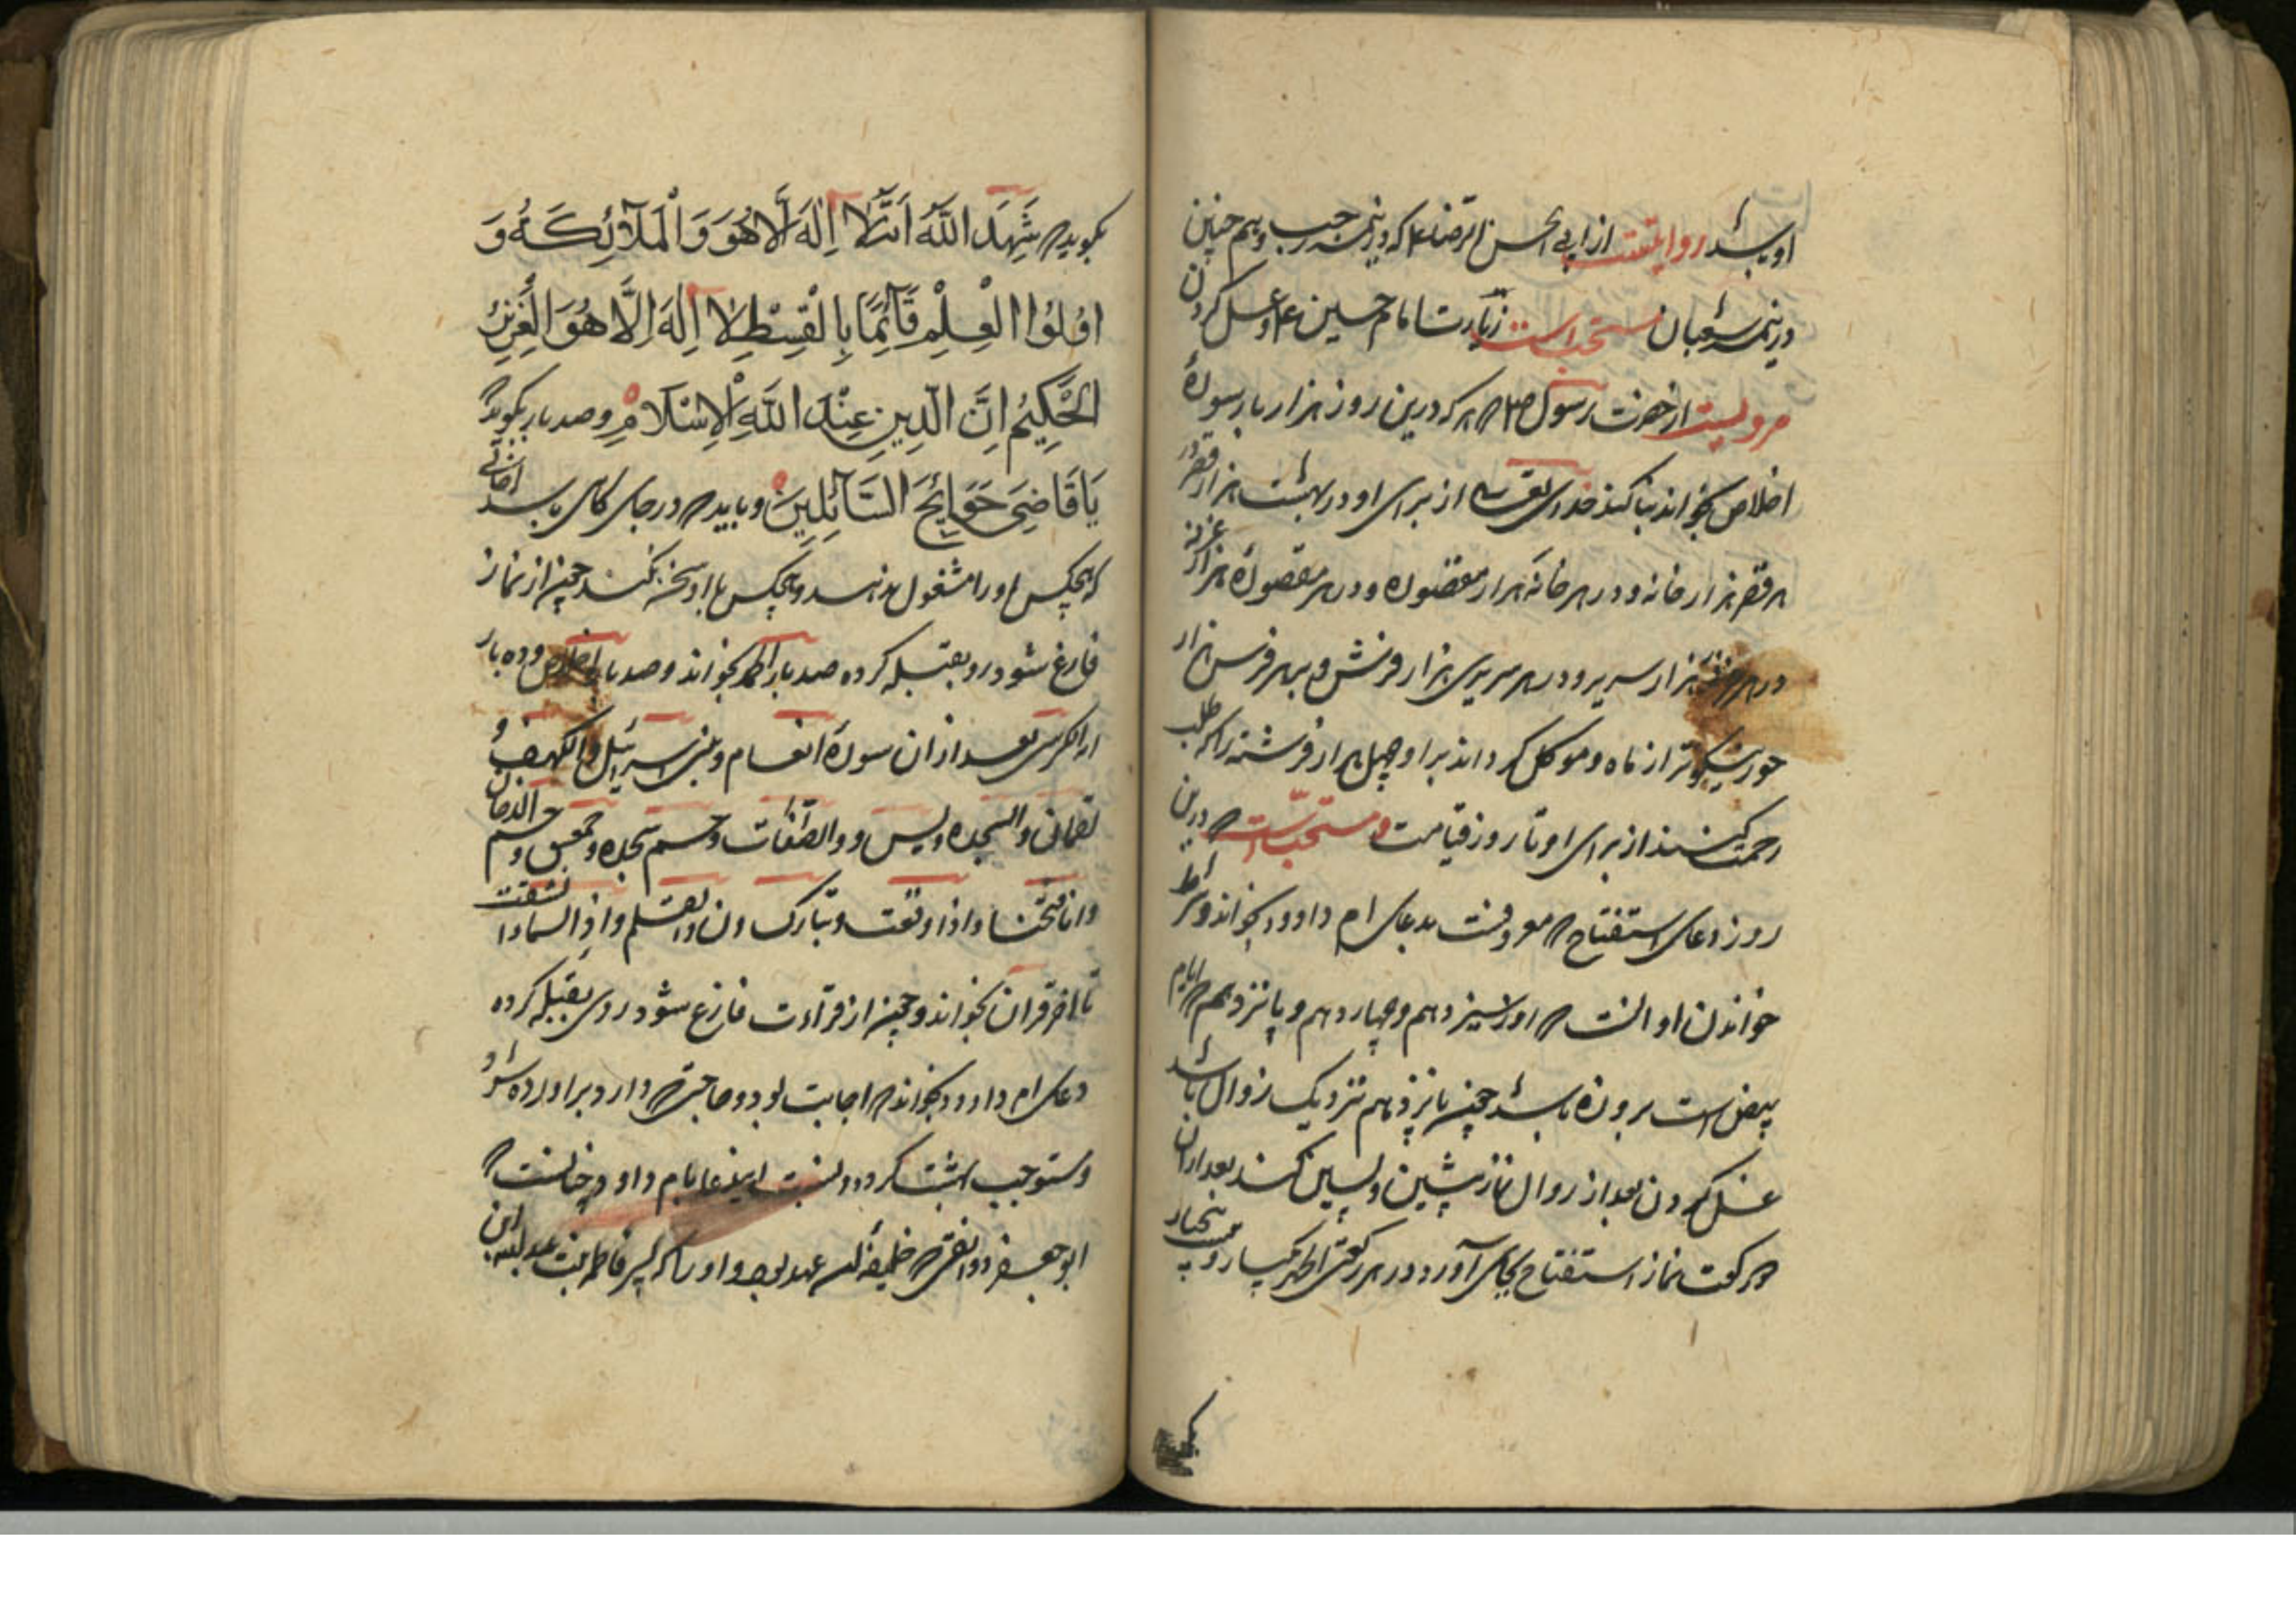 او باشد روایتست از ابی الحسن الرضا ع که در نیمه رجب و هم چنین
در نیمه شعبان مستحب است زیارت امام حسین ع و غسل کردن
مرویست از حضرت رسول ص که هر که درین روز هزار بار سورهٔ
اخلاص بخواند بنا کند خدای تعالی از برای او در بهشت هزار قصر در
هر قصر هزار خانه و در هر خانه هزار مقصوره و در هر مقصوره هزار غرفه
در هر غرفه هزار سریر و در هر سریری هزار فرش و بر هر فرش هزار
حور نیکوتر از ماه و موکل گرداند بر او چهل هزار فرشته را که طلب
رحمت کنند از برای او تا روز قیامت و مستحب است که درین
روز دعای استفتاح که معروفست بدعای ام داوود بخواند و شرط
خواندن او انست که اول سیزدهم و چهاردهم و پانزدهم که ایام
بیض است بروزه باشد چون پانزدهم نزدیک زوال باشد
غسل کردن بعد از زوال نماز پیشین و پسین کند بعد از ان
رکعت نماز استفتاح بجای آورد در هر رکعتی الحمد یکبار و
بگوید که شَهِدَ اللَّهُ اَنَّهُ لَا اِلَهَ اِلَّا هُوَ وَالْمَلَآئِكَةُ وَ
اُولُوا الْعِلْمِ قَآئِمًا بِالْقِسْطِ لَا اِلَهَ اِلَّا هُوَ الْعَزِيزُ
الْحَكِيمُ اِنَّ الدِّينَ عِنْدَ اللَّهِ الْاِسْلَامُ و صد بار بگوید که
يَا قَاضِيَ حَوَائِجَ السَّآئِلِينَ و باید که در جای باشد
که هیچکس او را مشغول ندارد و هیچکس با او سخن نکند چون از نماز
فارغ شود رو بقبله کرده صد بار الحمد بخواند و صد بار اخلاص و ده بار
ایة الکرسی بعد از ان سورهٔ انعام و بنی اسرائیل و الکهف و
لقمان و السجده و یس و والصافات و حم سجده و حمعسق و حم الدخان
و انا فتحنا و اذا وقعت و تبارک و ن والقلم و اذا السماء انشقت
تا اخر قران بخواند و چون از قراءت فارغ شود روی بقبله کرده
دعای ام داوود بخواند که اجابت بود و حاجتی که دارد براورده شود
و مستوجب بهشت گردد و نسبت این دعا بام داود چنانست که
ابو جعفر دوانقی که خلیفه آن عهد بود او را که پسر فاطمه بنت عبد الله ابن